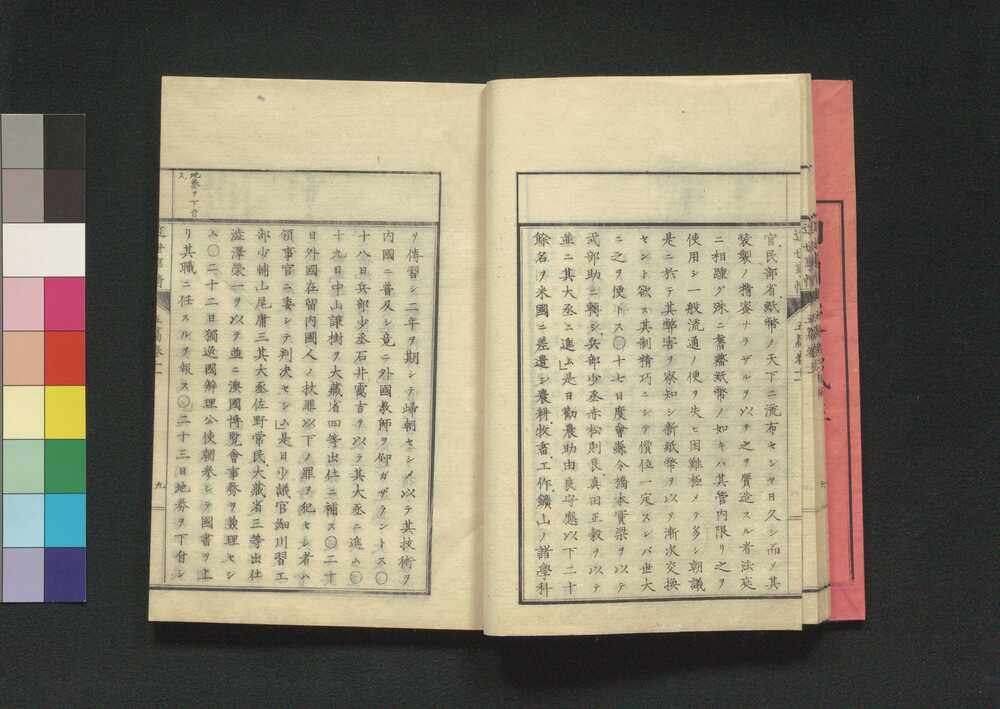 官民部省紙幣ノ天下ニ流布セシヤ日久シ而メ其
装製ノ精密ナラザルヲ以テ之ヲ贋造スル者法庭
ニ相踵グ殊ニ舊藩紙幣ノ如キハ其管内限リ之ヲ
使用シ一般流通ノ便ヲ失ヒ困難極メテ多シ朝議
是ニ於テ其弊害ヲ察知シ新紙幣ヲ以テ漸次交換
セント欲ス其制精巧ニシテ價位一定スレバ世大
ニ之ヲ便トス〇十七日度會縣令橋本實梁ヲ以テ
式部助ニ轉シ兵部少丞赤松則良真田正毅ヲ以テ
並ニ其大丞ニ進ム」是日勸農助由良守應以下二十
餘名ヲ米國ニ差遣シ農耕牧畜工作鑛山ノ諸學科
ヲ傳習シ二年ヲ期シテ歸朝セシメ以テ其技術ヲ
内國ニ普及シ竟ニ外國教師ヲ仰ガザラントス〇
十八日兵部少丞石井靄吉ヲ以テ其大丞ニ進ム〇
十九日中山讓樹ヲ大藏省四等出仕ニ補ス〇二十
日外國在留内國人ノ杖罪以下ノ罪ヲ犯セシ者ハ
領事官ニ委シテ判決セシム」是日少議官細川習工
部少輔山尾庸三其大丞佐野常民大藏省三等出仕
澁澤榮一ヲ以テ並ニ澳國博覽會事務ヲ數理セシ
ム〇二十二日獨逸國辨理公使朝參シテ國書ヲ上
リ其職ニ任スルヲ報ス〇二十三日地券ヲ下付シ
地券ヲ下付
ス
九